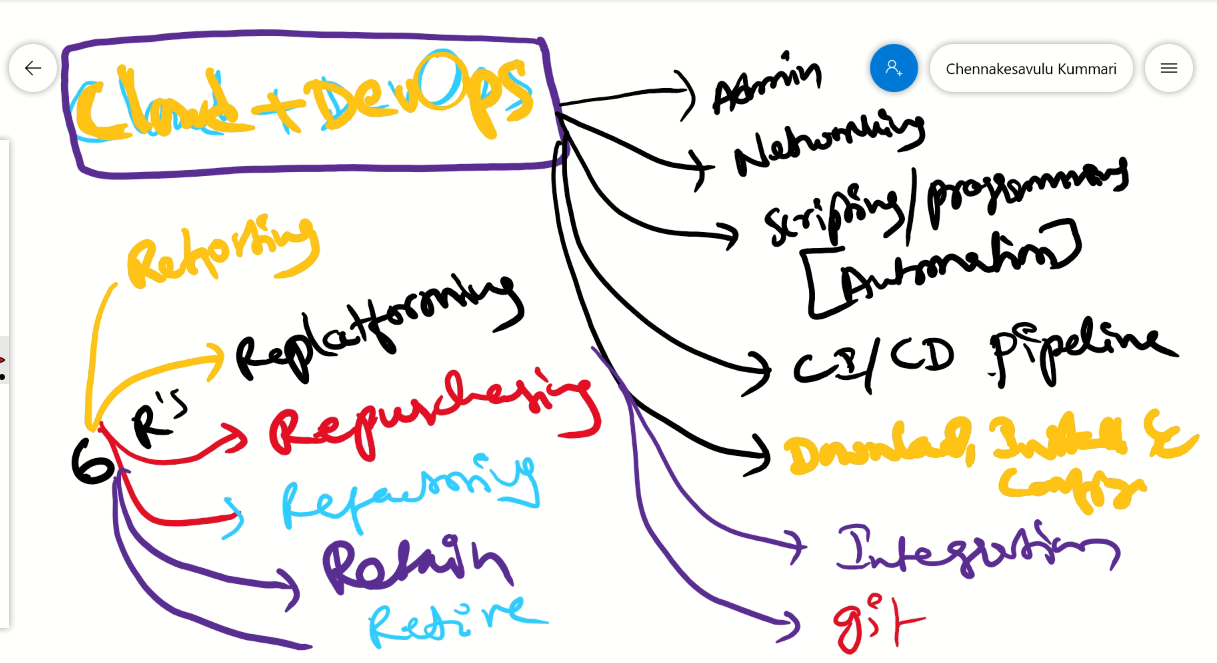 Cloud + DevOps
Chennakesavulu Kummari
Admin
Networking
Scripting/programming
[Automation]
CI/CD Pipeline
Download, Install, &
Config
Integration
git
6 R's
Rehosting
Replatforming
Repurchasing
Refactoring
Retain
Retire